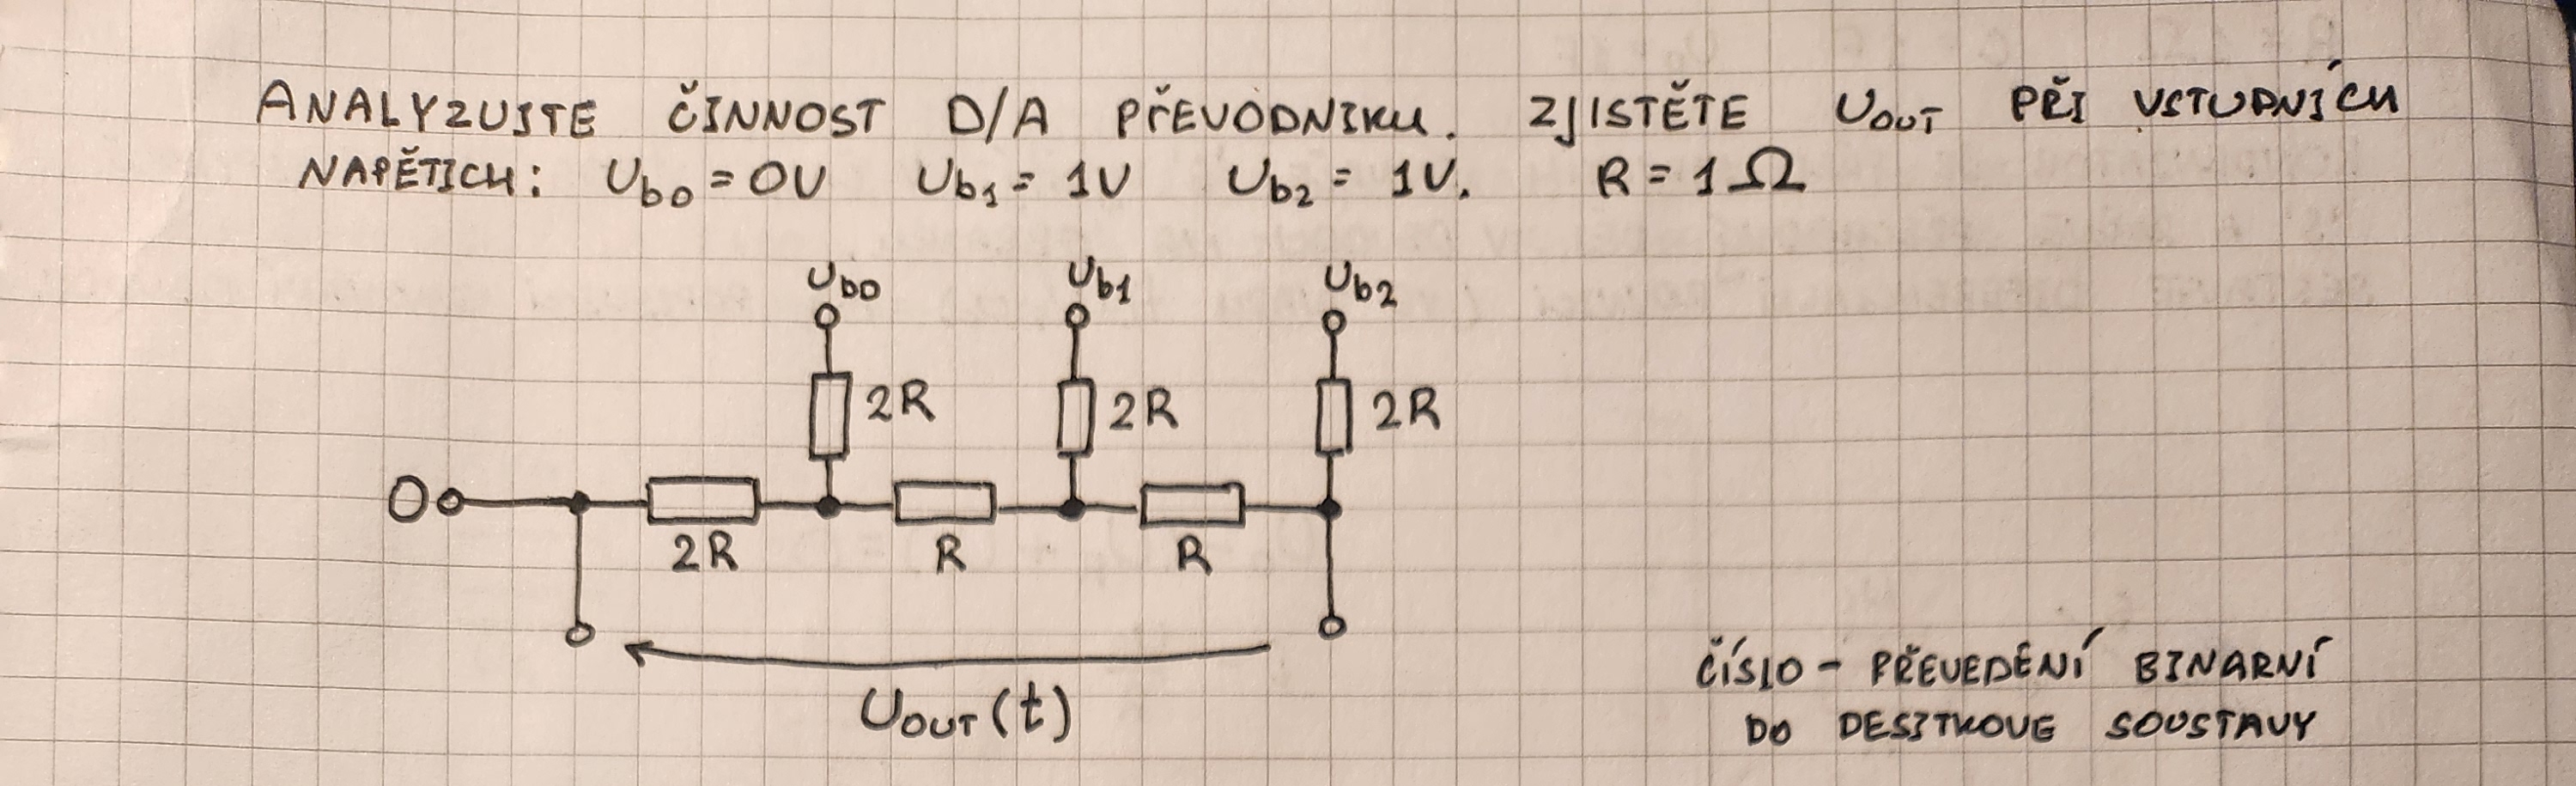 ANALYZUJTE ČINNOST D/A PŘEVODNIKU. ZJISTĚTE UOUT PŘI VSTUPNÍCH
NAPĚTICH: Ub0 = 0V Ub1 = 1V Ub2 = 1V. R = 1Ω
Ub0 Ub1 Ub2
2R 2R 2R
0
2R R R
UOUT(t)
ČÍSLO - PŘEVEDENÍ BINARNÍ
DO DESITKOVE SOUSTAVY